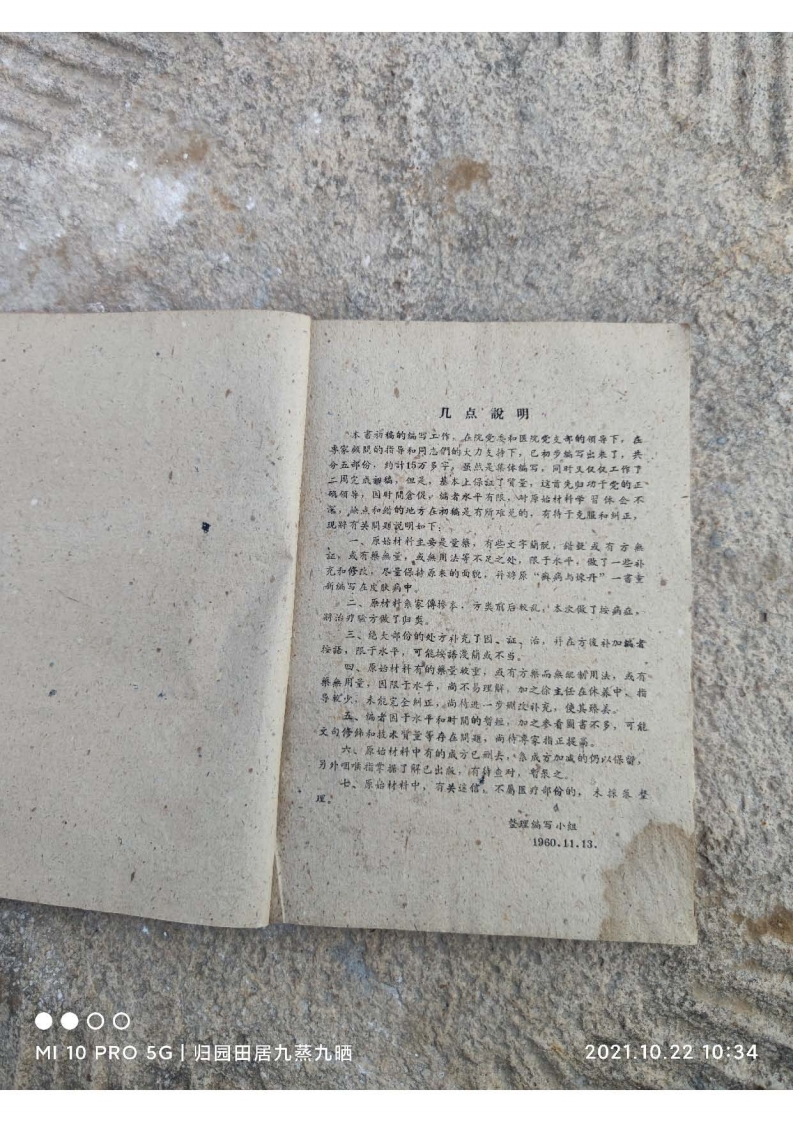 几点說明
本書初稿的編写工作，在院党委和医院党支部的領导下，在
专家顧問的指导和同志們的大力支持下，已初步編写出来了，共
分五部份，約計15万多字，虽然是集体編写，同时又仅仅工作了
二周完成初稿，但是，基本上保証了質量，这首先归功于党的正
确領导，因时間倉促，編者水平有限，对原始材料学習体会不
深，缺点和錯的地方在初稿是有所难免的，有待于克服和糾正，
現将有关問題說明如下：
一、原始材料主要是盘藥，有些文字簡脫，錯或有方無
証，或有藥無量，或無用法等不足之处，限于水平，做了一些补
充和修改，尽量保持原来的面貌，并将原“癣病与炼丹”一書重
新編写在皮肤病中。
二、原材料系家傳抄本，方类前后較乱，本次做了按病症，
别治疗驗方做了归类。
三、絕大部份的处方补充了因、証、治，并在方後补加編者
按語，限于水平，可能按語浅簡或不当。
四、原始材料有的藥量較重，或有方藥而無配制用法，或有
藥無用量，因限于水平，尚不易理解，加之徐主任在休养中、指
导較少，未能完全糾正，尚待进一步删改补充，使其臻美。
五、編者因于水平和时間的暫短，加之参看圖書不多，可能
文句修飾和技术質量等存在問題，尚待專家指正提高。
六、原始材料中有的成方已删去，系成方加减的仍以保留，
另外咽喉指掌据了解已出版，有待查对，暫录之。
七、原始材料中，有关迷信，不屬医疗部份的，未採录整
理。
整理編写小組
1960.11.13.
MI 10 PRO 5G | 归园田居九蒸九晒
2021.10.22 10:34